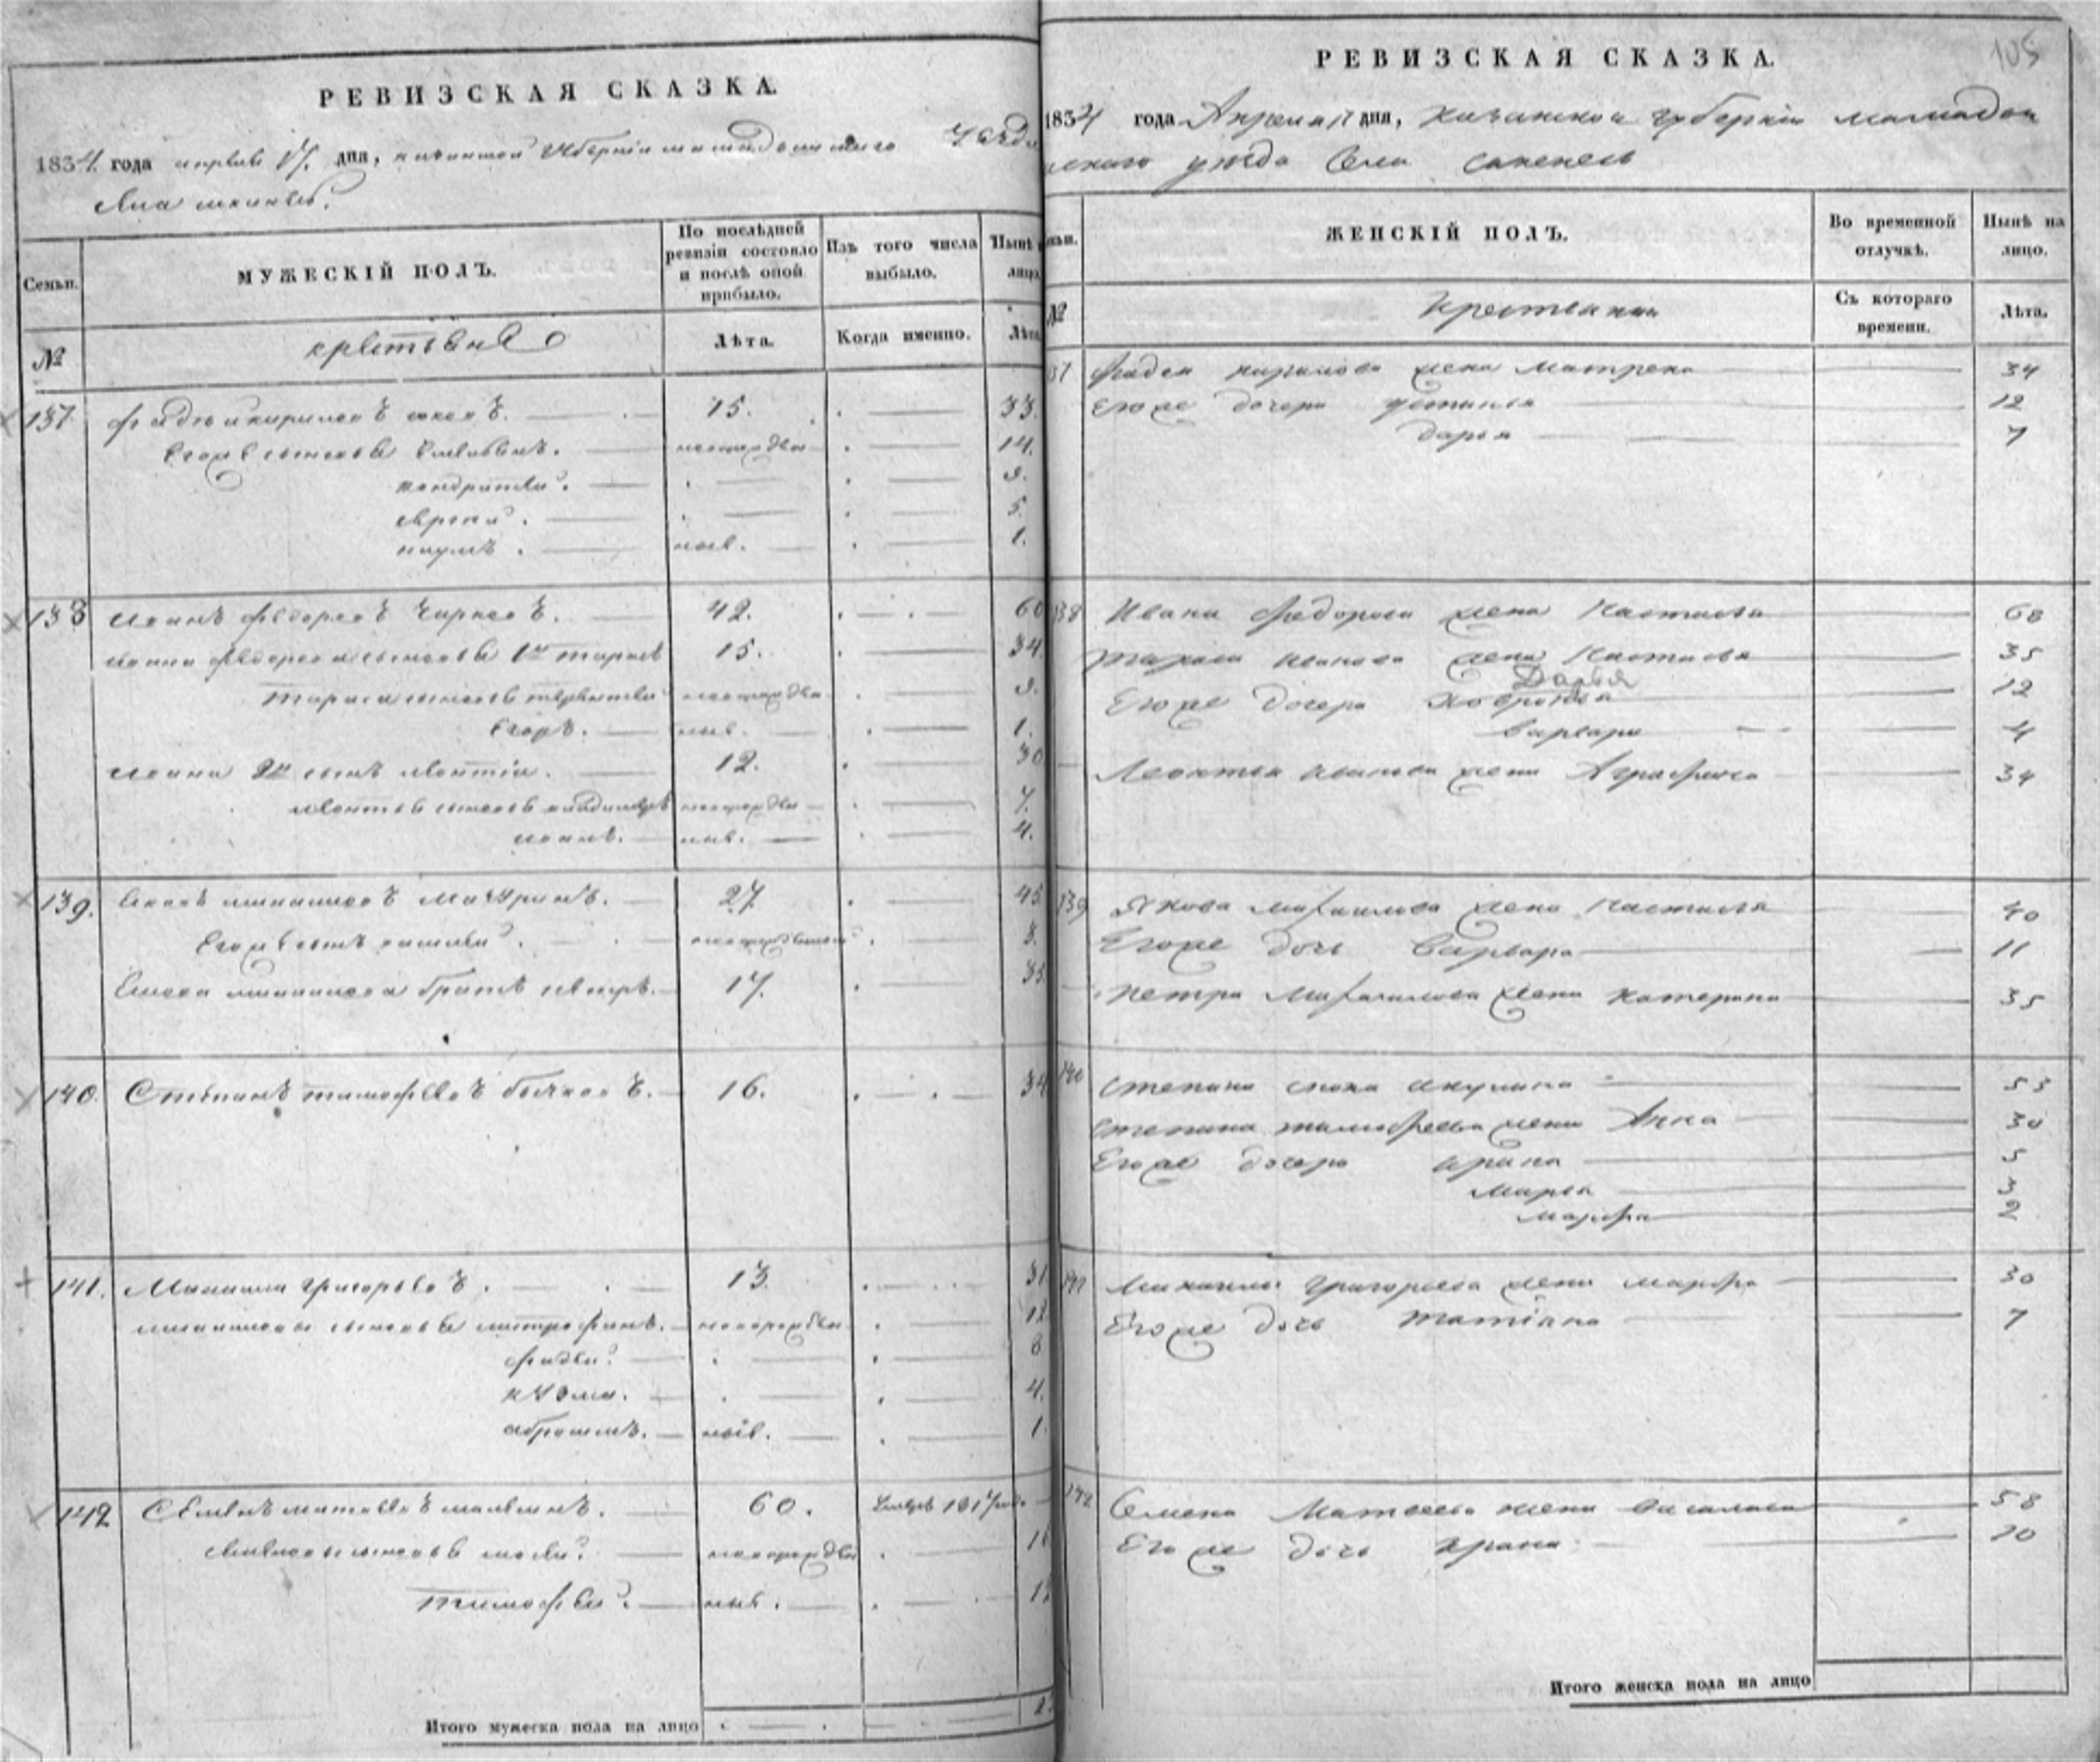 РЕВИЗСКАЯ СКАЗКА.
1834 года апреля 17 дня, казанской губернiи мамадышского уезда
Села
Семьи.
МУЖЕСКIЙ ПОЛЪ.
По послѣдней ревизiи состояло и послѣ оной прибыло.
Изъ того числа выбыло.
Нынѣ на лицо.
№
крестьяне
Лѣта.
Когда именно.
Лѣта.
137. 15. 33.
Егоже сыновья новорожден 14.
кондратей. 9.
сергей. 5.
наумъ. нов. 1.
138 иванъ федоровъ 42. 60
ивана федорова сыновья 1й тарасъ 15. 34
тараса сыновья новорожден 9.
Егоръ. нов. 1.
ивана 2й сынъ леонтiи. 12. 30
леонтья сыновья владимиръ новорожден 7.
иванъ. нов. 4.
139. яковъ михаиловъ мачуринъ. 27. 45
Егоже сынъ новорожденный 3.
михаилова братъ петръ. 17. 35
140. Степанъ тимофеевъ бычковъ. 16. 34
141. Михаила григорьевъ. 13. 31
михаиловы сыновья митрофанъ. новорожден 12
фадей. 8
кузма. 4.
абрамъ. нов. 1.
142 Семенъ матвеевъ 60. 1817
сыновья новорожден 16
тимофей. нов.
Итого мужеска пола на лицо
РЕВИЗСКАЯ СКАЗКА.
105
1834 года Апреля 17 дня, казанской губернiи мамадышского уезда Села
Семьи.
ЖЕНСКIЙ ПОЛЪ.
Во временной отлучкѣ.
Нынѣ на лицо.
№
крестьянки
Съ котораго времени.
Лѣта.
137 Фадея кирилова жена Матрена 34
Егоже дочери устинья 12
дарья 7
138 Ивана Федорова жена Настасья 60
тараса иванова жена Настасья 35
Дарья
Егоже дочери 12
варвара 4
Леонтья иванова жена Аграфена 34
139 Якова михаилова жена Настасья 40
Егоже дочь Варвара 11
Петра Михаилова жена катерина 35
140 Степана акулина 53
степана тимофеева жена Анна 30
Егоже дочери арина 5
марья 3
марфа 2
141 Михаилы Григорьева жена марфа 30
Егоже дочь татiана 7
142 Семена Матвеева жена василиса 58
Егоже дочь 10
Итого женска пола на лицо